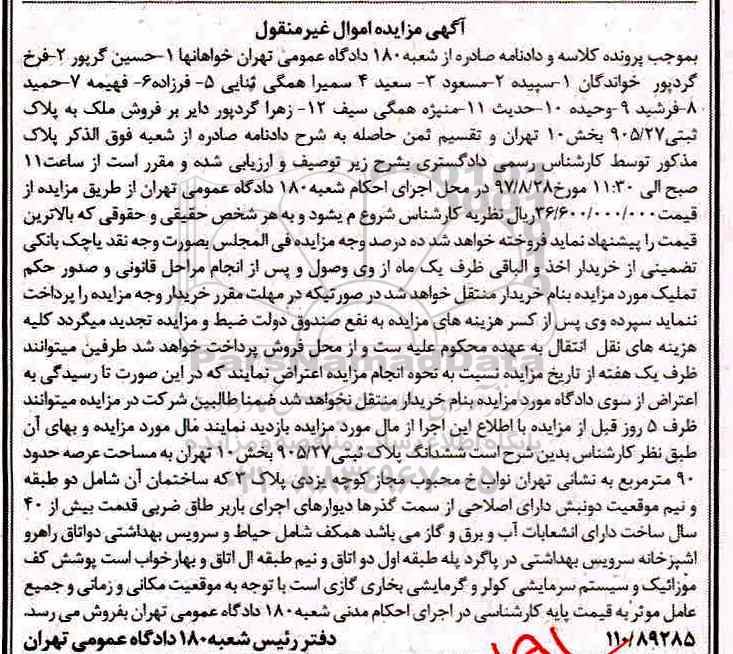 آگهی مزایده اموال غیرمنقول
بموجب پرونده کلاسه و دادنامه صادره از شعبه ۱۸۰ دادگاه عمومی تهران خواهانها ۱-حسین گرپور ۲-فرخ
گردپور خواندگان ۱-سپیده ۲-مسعود ۳- سعید ۴ سمیرا همگی ثنایی ۵- فرزاده۶- فهیمه ۷-حمید
۸-فرشید ۹-وحیده ۱۰-حدیث ۱۱-منیژه همگی سیف ۱۲- زهرا گردپور دایر بر فروش ملک به پلاک
ثبتی۹۰۵/۲۷ بخش۱۰ تهران و تقسیم ثمن حاصله به شرح دادنامه صادره از شعبه فوق الذکر پلاک
مذکور توسط کارشناس رسمی دادگستری بشرح زیر توصیف و ارزیابی شده و مقرر است از ساعت۱۱
صبح الی ۱۱:۳۰ مورخ۹۷/۸/۲۸ در محل اجرای احکام شعبه۱۸۰ دادگاه عمومی تهران از طریق مزایده از
قیمت۳۶/۶۰۰/۰۰۰/۰۰۰ریال نظریه کارشناس شروع م یشود و به هر شخص حقیقی و حقوقی که بالاترین
قیمت را پیشنهاد نماید فروخته خواهد شد ده درصد وجه مزایده فی المجلس بصورت وجه نقد یاچک بانکی
تضمینی از خریدار اخذ و الباقی ظرف یک ماه از وی وصول و پس از انجام مراحل قانونی و صدور حکم
تملیک مورد مزایده بنام خریدار منتقل خواهد شد در صورتیکه در مهلت مقرر خریدار وجه مزایده را پرداخت
ننماید سپرده وی پس از کسر هزینه های مزایده به نفع صندوق دولت ضبط و مزایده تجدید میگردد کلیه
هزینه های نقل انتقال به عهده محکوم علیه ست و از محل فروش پرداخت خواهد شد طرفین میتوانند
ظرف یک هفته از تاریخ مزایده نسبت به نحوه انجام مزایده اعتراض نمایند که در این صورت تا رسیدگی به
اعتراض از سوی دادگاه مورد مزایده بنام خریدار منتقل نخواهد شد ضمنا طالبین شرکت در مزایده میتوانند
ظرف ۵ روز قبل از مزایده با اطلاع این اجرا از مال مورد مزایده بازدید نمایند مال مورد مزایده و بهای آن
طبق نظر کارشناس بدین شرح است ششدانگ پلاک ثبتی۹۰۵/۲۷ بخش۱۰ تهران به مساحت عرصه حدود
۹۰ مترمربع به نشانی تهران نواب خ محبوب مجاز کوچه یزدی پلاک۴ که ساختمان آن شامل دو طبقه
و نیم موقعیت دونبش دارای اصلاحی از سمت گذرها دیوارهای اجرای باربر طاق ضربی قدمت بیش از ۴۰
سال ساخت دارای انشعابات آب و برق و گاز می باشد همکف شامل حیاط و سرویس بهداشتی دواتاق راهرو
اشپزخانه سرویس بهداشتی در پاگرد پله طبقه اول دو اتاق و نیم طبقه ال اتاق و بهارخواب است پوشش کف
موزائیک و سیستم سرمایشی کولر و گرمایشی بخاری گازی است با توجه به موقعیت مکانی و زمانی و جمیع
عامل موثر به قیمت پایه کارشناسی در اجرای احکام مدنی شعبه۱۸۰ دادگاه عمومی تهران بفروش می رسد.
۱۱۰/۸۹۲۸۵ دفتر رئیس شعبه۱۸۰ دادگاه عمومی تهران
ParsNamadData